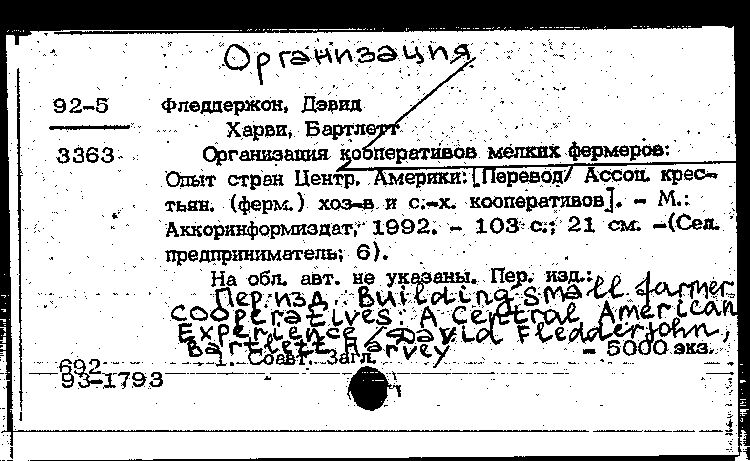 Организация
92-5 Фледдержон, Дэвид
Харви, Бартлетт
3363 Организация кооперативов мелких фермеров:
Опыт стран Центр. Америки: [Перевод/ Ассоц. крес-
тьян. (ферм.) хоз-в и с.-х. кооперативов]. - М.:
Аккоринформиздат, 1992. - 103 с.; 21 см. -(Сел.
предприниматель; 6).
На обл. авт. не указаны. Пер. изд.:
Пер.изд.: Building small farmer
cooperatives: A Central American
Experience / David Fledderjohn,
Bartlett Harvey - 5000 экз.
1. Соавт. Загл.
692
93-1793